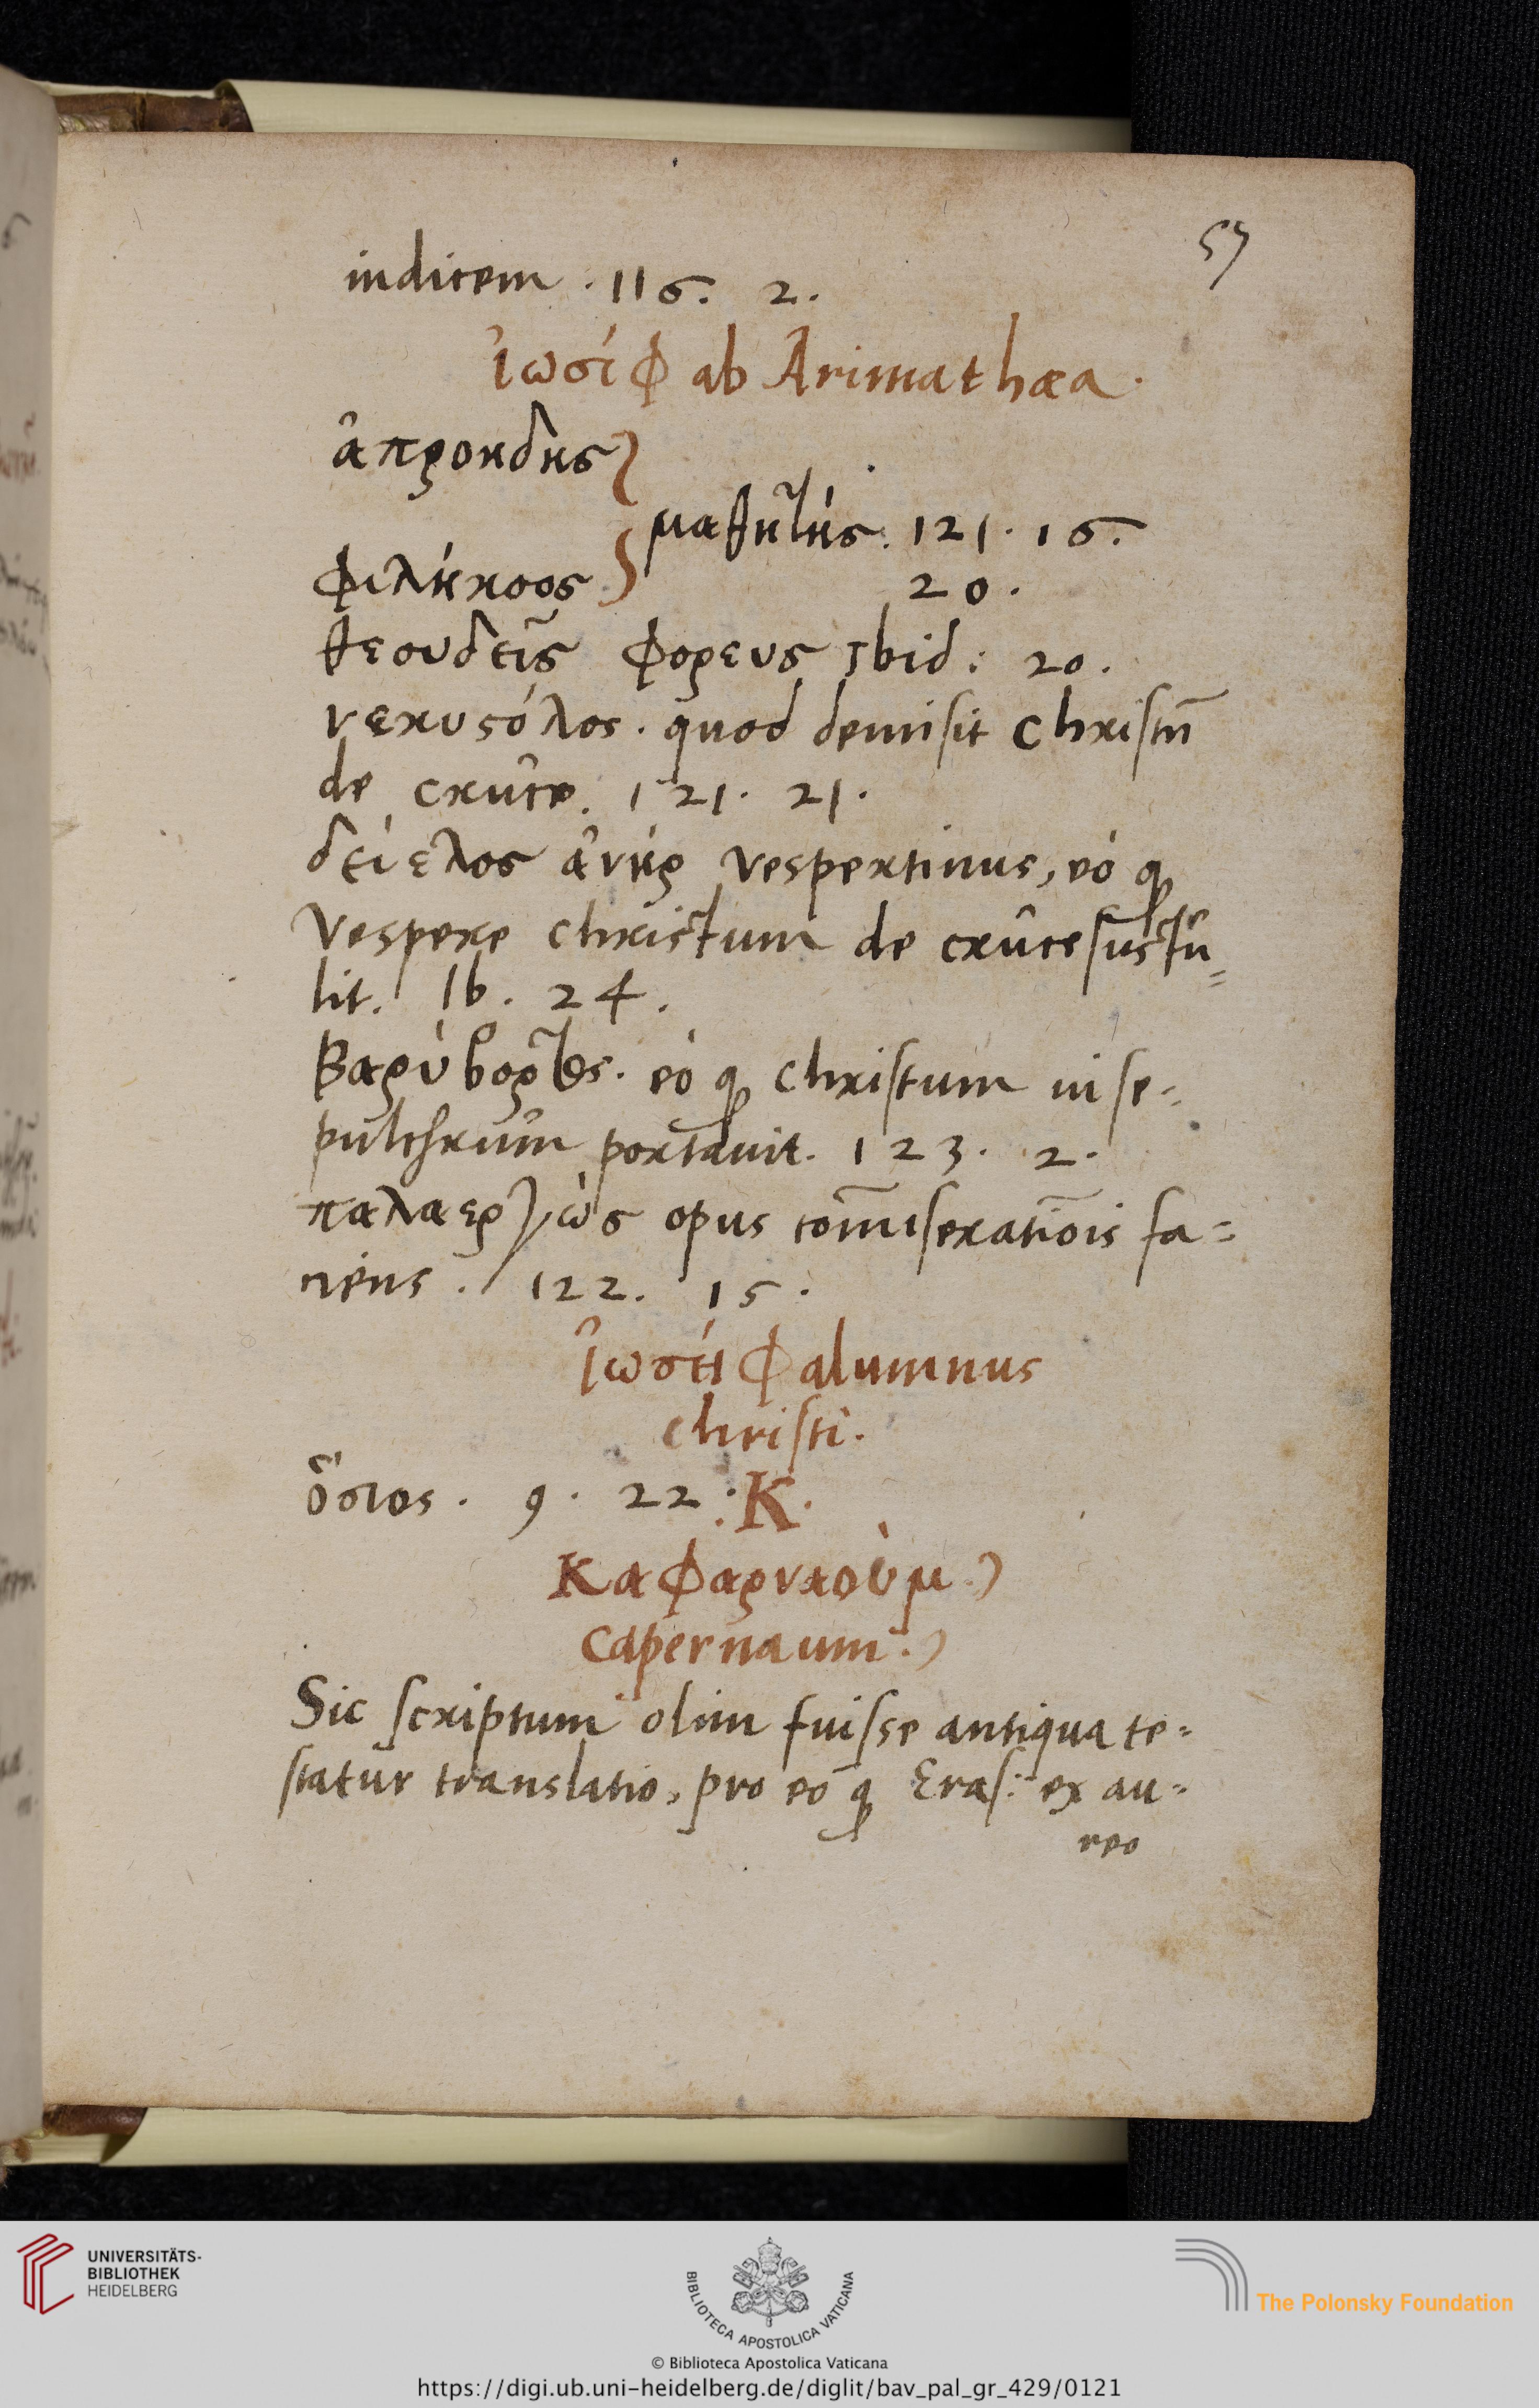 57
indicem . 116. 2.
ἰωσίφ ab Arimathæa.
ἀπροιδης
μαθητής. 121. 16.
φιλήκοος 20.
θεουδεῖς φορευς Ibid: 20.
νεκυςόλος. quod demisit Christū
de cruce. 121. 21.
δείελος ἀνήρ vespertinus, eó ꝙ
vespere christum de cruce sustu=
lit. Ib. 24.
Βαρὺ eó ꝙ Christum in se=
pulchrum portauit. 123. 2.
opus com̄iserationis fa=
ciens. 122. 15.
ἰωσήφ alumnus
christi.
ὅσιος. 9. 22.
.K.
Καφαρναοὺμ
Capernaum.
Sic scriptum olim fuisse antiqua te=
statur translatio, pro eo ꝙ Eras: ex au=
reo
UNIVERSITÄTS-
BIBLIOTHEK
HEIDELBERG
BIBLIOTECA APOSTOLICA VATICANA
The Polonsky Foundation
© Biblioteca Apostolica Vaticana
https://digi.ub.uni-heidelberg.de/diglit/bav_pal_gr_429/0121